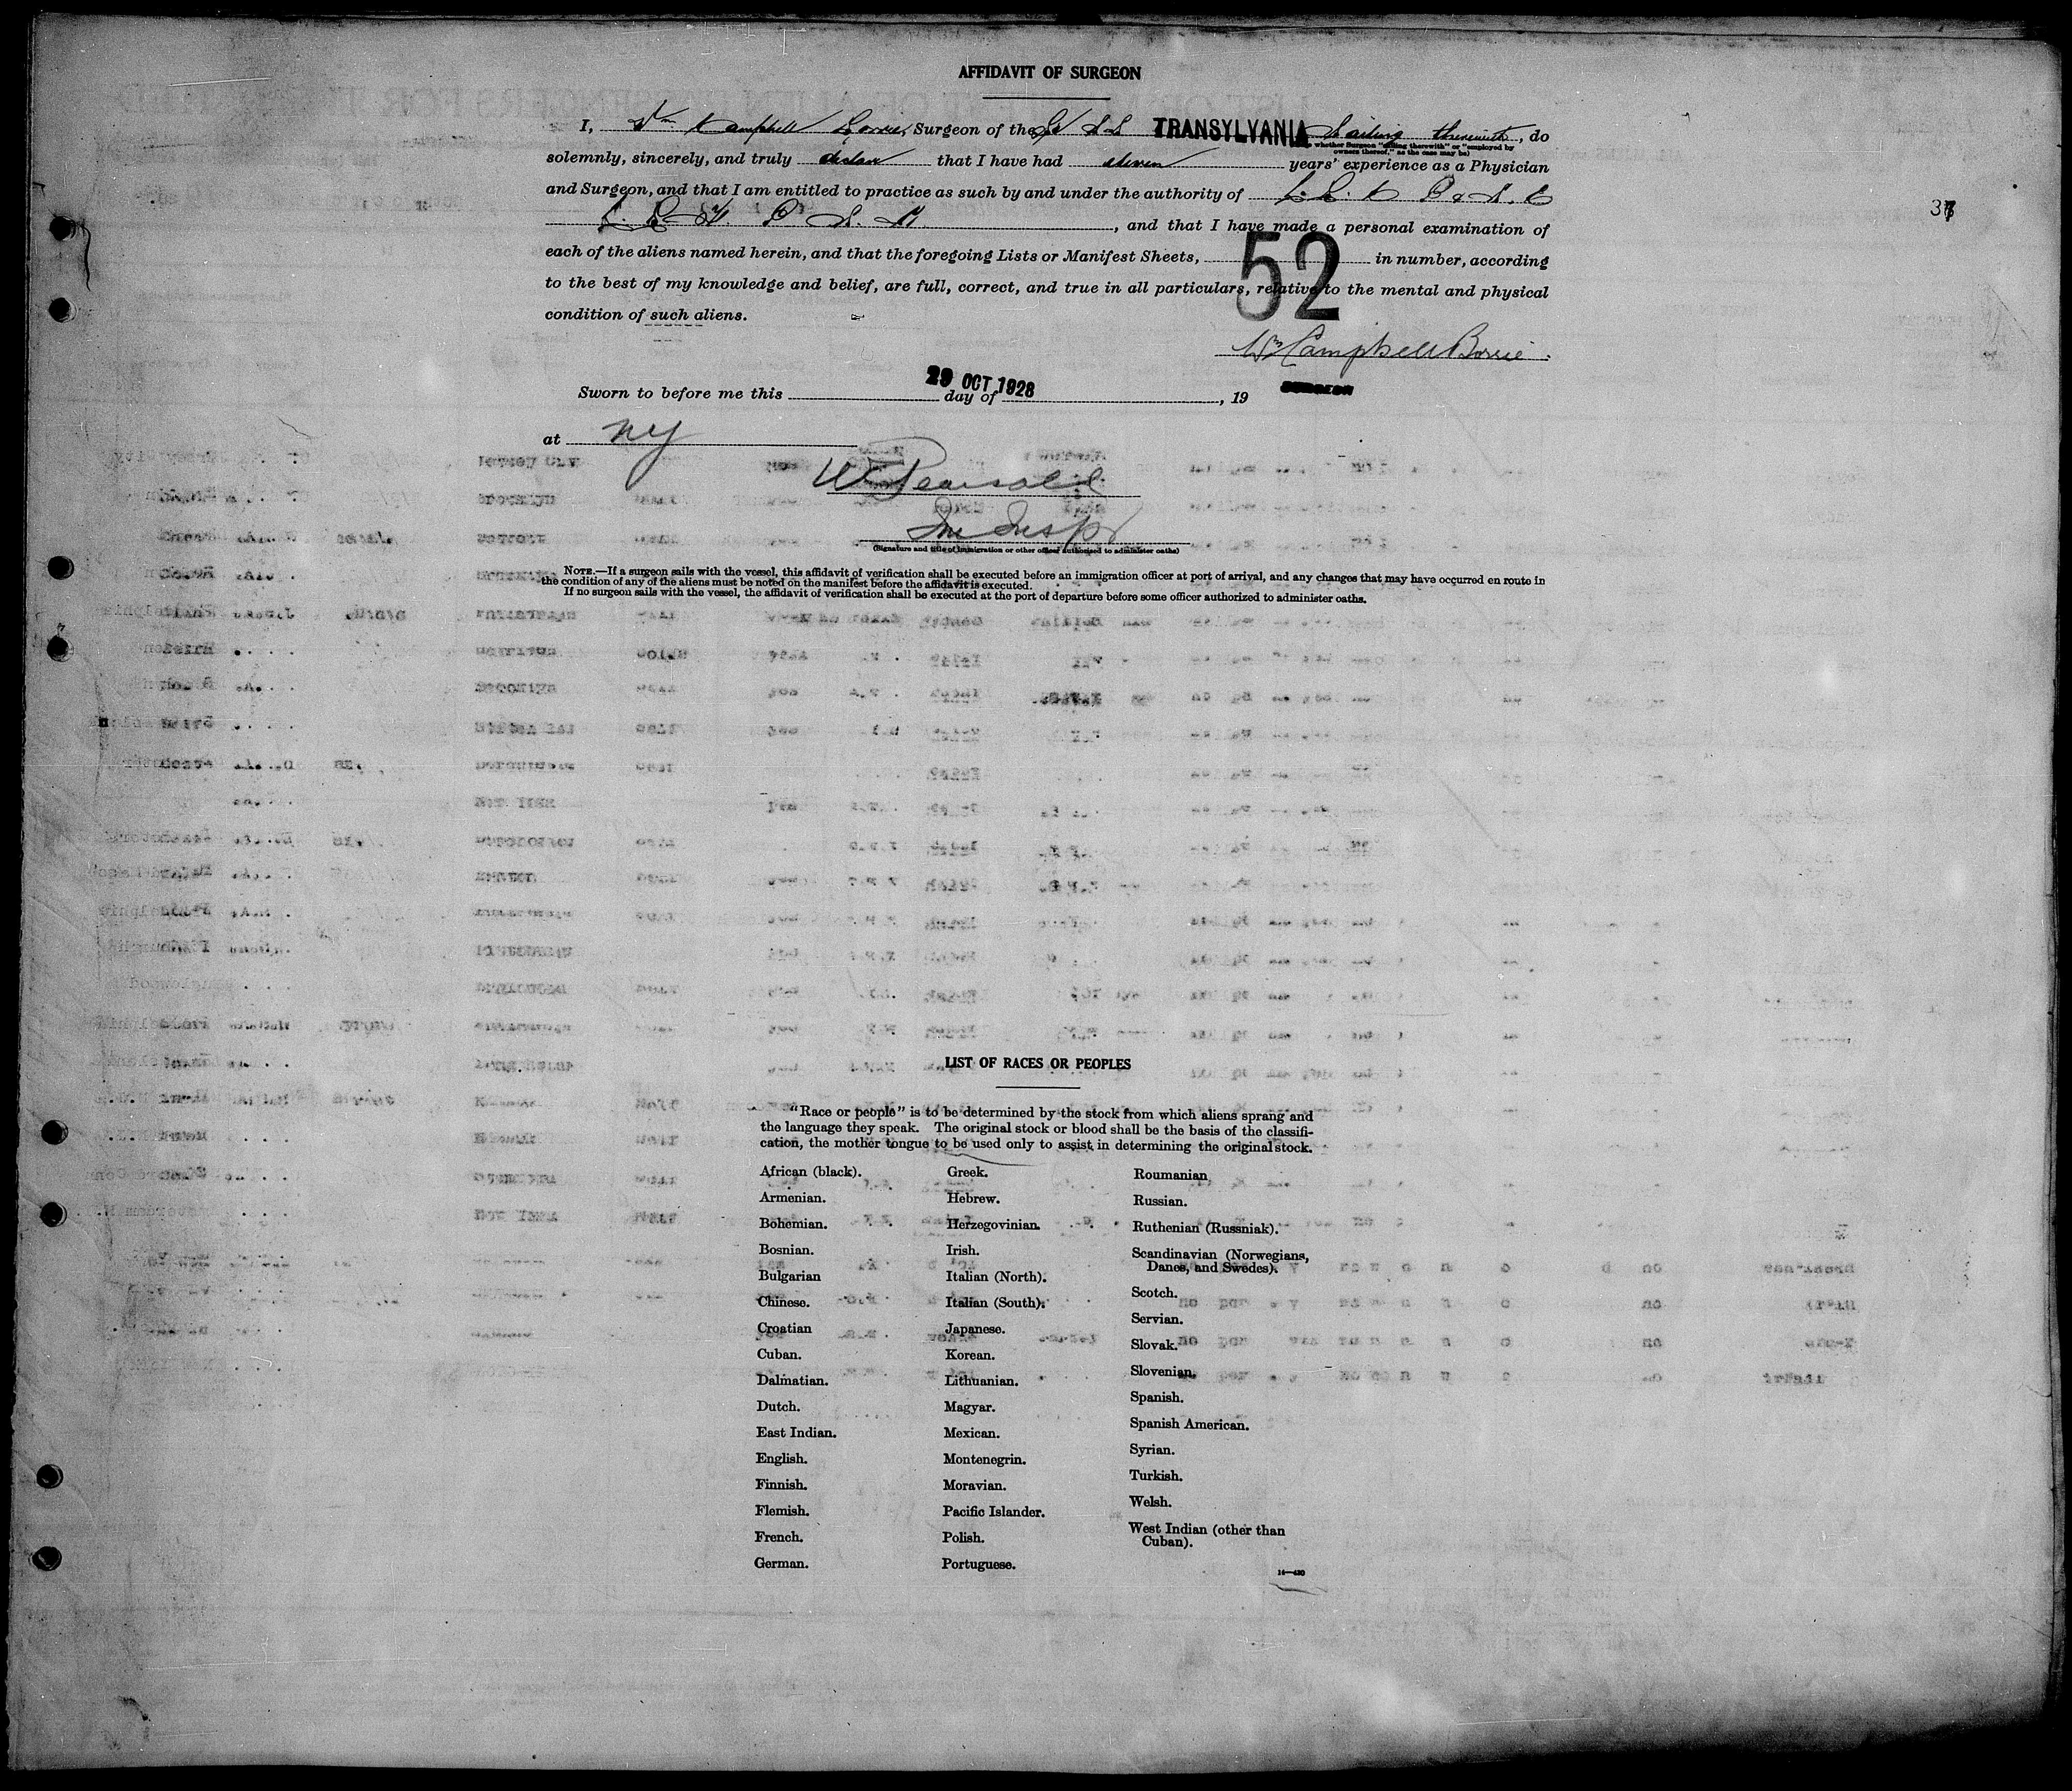 AFFIDAVIT OF SURGEON
I, Wm Campbell Borrie, Surgeon of the S S TRANSYLVANIA Sailing therewith, do
whether Surgeon "sailing therewith" or "employed by
owners thereof," as the case may be)
solemnly, sincerely, and truly declare that I have had eleven years' experience as a Physician
and Surgeon, and that I am entitled to practice as such by and under the authority of
37
, and that I have made a personal examination of
each of the aliens named herein, and that the foregoing Lists or Manifest Sheets, 52 in number, according
to the best of my knowledge and belief, are full, correct, and true in all particulars, relative to the mental and physical
condition of such aliens.
Wm Campbell Borrie.
SURGEON
Sworn to before me this 29 day of OCT 1928, 19
at NY
W Pearsall
Im Inspr
(Signature and title of immigration or other officer authorized to administer oaths)
NOTE.—If a surgeon sails with the vessel, this affidavit of verification shall be executed before an immigration officer at port of arrival, and any changes that may have occurred en route in
the condition of any of the aliens must be noted on the manifest before the affidavit is executed.
If no surgeon sails with the vessel, the affidavit of verification shall be executed at the port of departure before some officer authorized to administer oaths.
LIST OF RACES OR PEOPLES
"Race or people" is to be determined by the stock from which aliens sprang and
the language they speak. The original stock or blood shall be the basis of the classifi-
cation, the mother tongue to be used only to assist in determining the original stock.
African (black).
Armenian.
Bohemian.
Bosnian.
Bulgarian
Chinese.
Croatian
Cuban.
Dalmatian.
Dutch.
East Indian.
English.
Finnish.
Flemish.
French.
German.
Greek.
Hebrew.
Herzegovinian.
Irish.
Italian (North).
Italian (South).
Japanese.
Korean.
Lithuanian.
Magyar.
Mexican.
Montenegrin.
Moravian.
Pacific Islander.
Polish.
Portuguese.
Roumanian
Russian.
Ruthenian (Russniak).
Scandinavian (Norwegians,
Danes, and Swedes).
Scotch.
Servian.
Slovak.
Slovenian.
Spanish.
Spanish American.
Syrian.
Turkish.
Welsh.
West Indian (other than
Cuban).
14—430